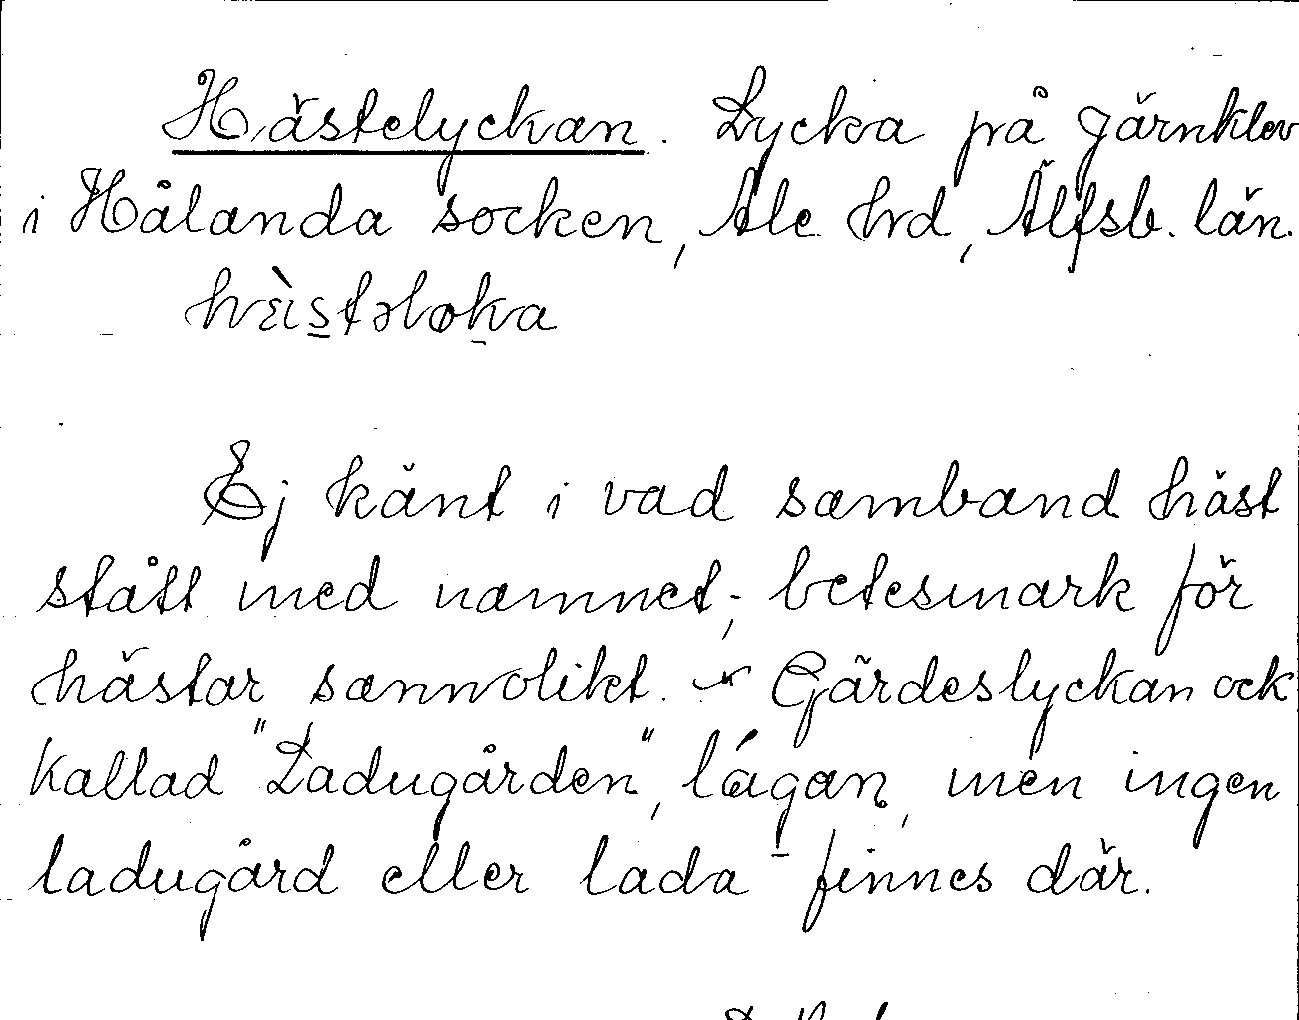 Hästelyckan. Lycka på Gärnklev
i Hålanda socken, Ale hrd, Älfsb. län.
Ej känt i vad samband häst
stått med namnet; betesmark för
hästar sannolikt. Gärdeslyckan ock
kallad "Ladugården", lágan, men ingen
ladugård eller lada finnes där.